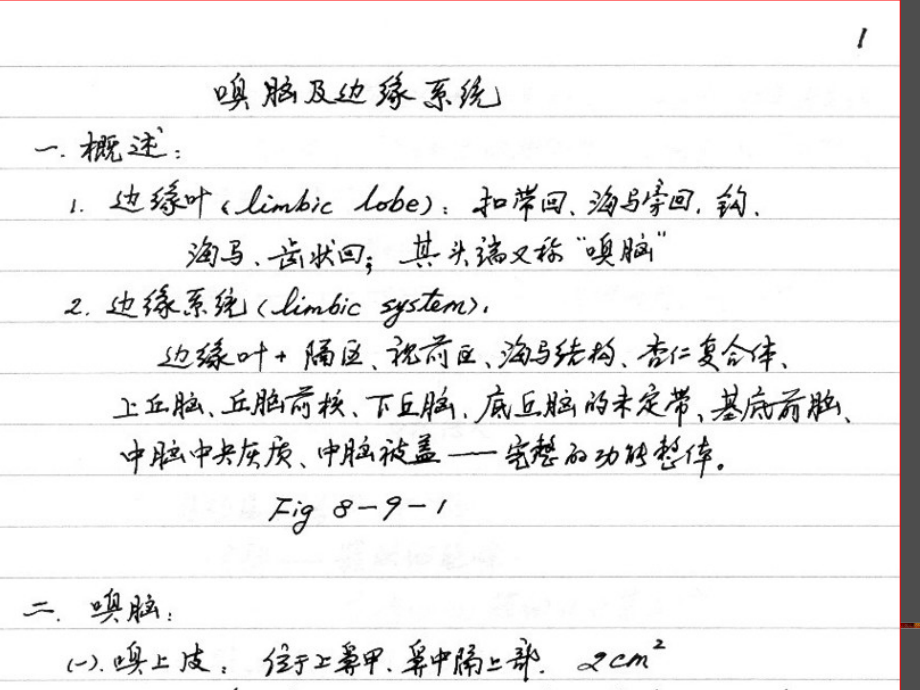 1
嗅脑及边缘系统
一. 概述:
1. 边缘叶(limbic lobe): 扣带回、海马旁回、钩、
海马、齿状回; 其头端又称"嗅脑"
2. 边缘系统(limbic system),
边缘叶+隔区、视前区、海马结构、杏仁复合体、
上丘脑、丘脑前核、下丘脑、底丘脑的未定带、基底前脑、
中脑中央灰质、中脑被盖——完整的功能整体。
Fig 8-9-1
二. 嗅脑:
(一). 嗅上皮: 位于上鼻甲、鼻中隔上部. 2cm²